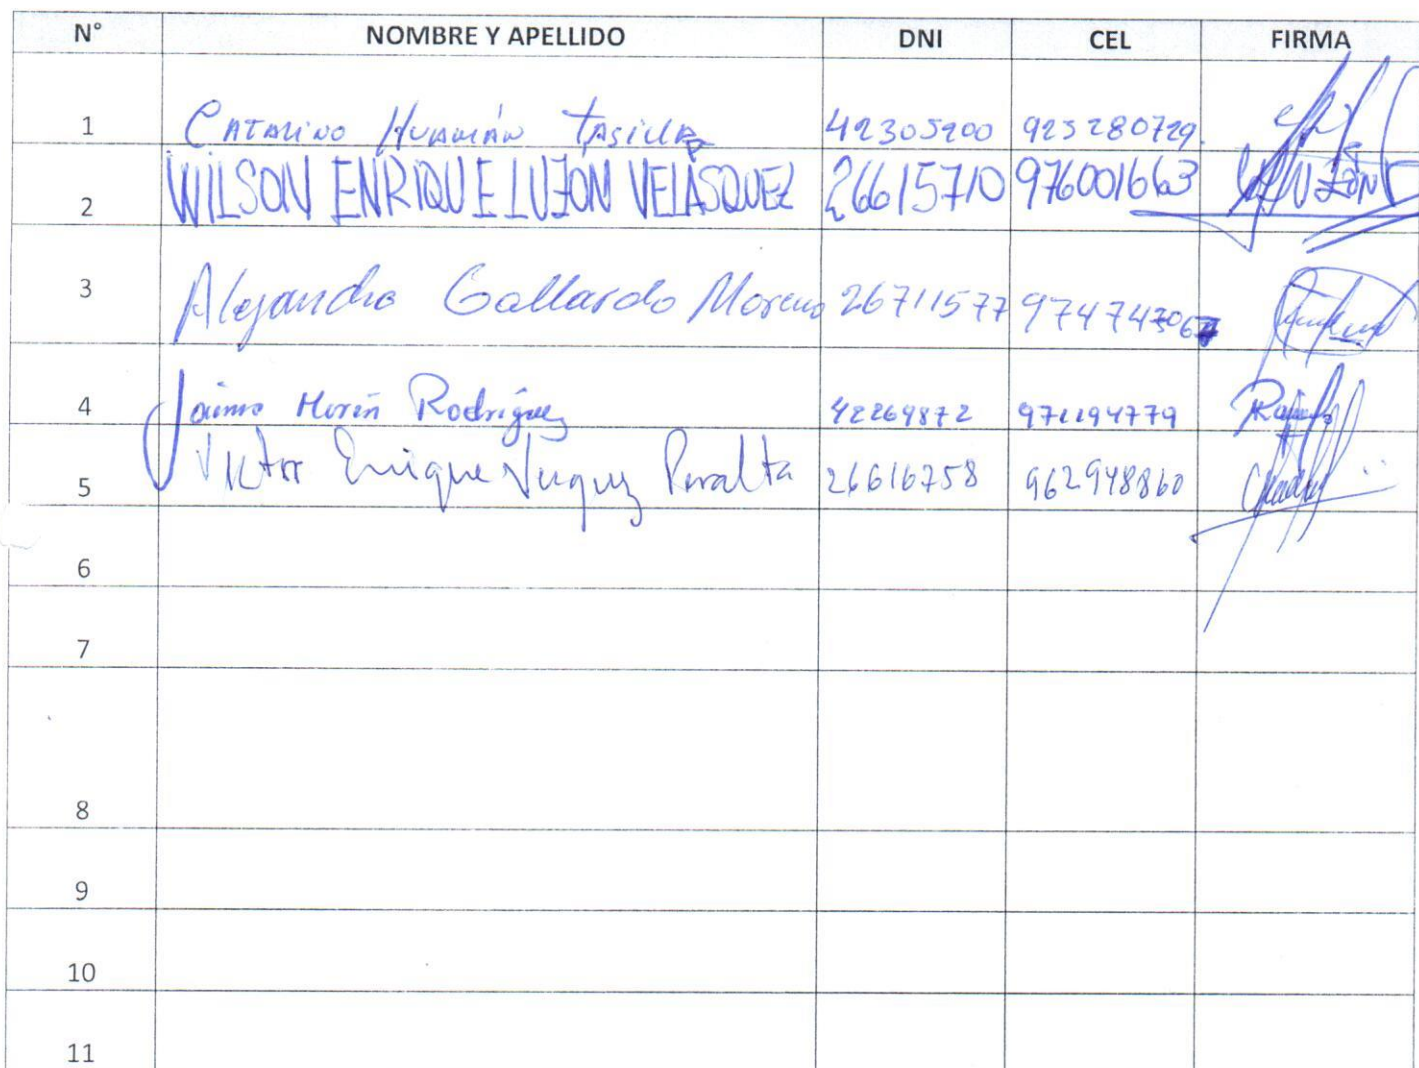 N° NOMBRE Y APELLIDO DNI CEL FIRMA
1 CATALINO HUAMÁN TASILLA 42305200 925280729
2 WILSON ENRIQUE LUZON VELÁSQUEZ 26615710 976001663 LUZON
3 Alejandro Gallardo Moreno 26711577
4 Jaime Marín Rodríguez 42269872
5 Victor Enrique Vasquez Peralta 26616758 962948860
6
7
8
9
10
11